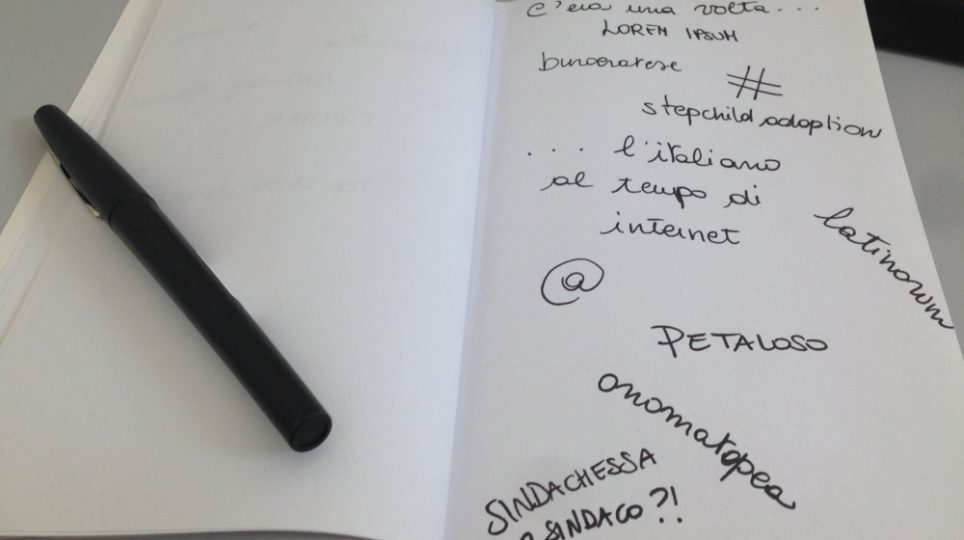 c'era una volta...
LOREM IPSUM
burocratese
#
stepchild adoption
... l'italiano
al tempo di
internet
latinorum
@
PETALOSO
onomatopea
SINDACHESSA
o SINDACO?!